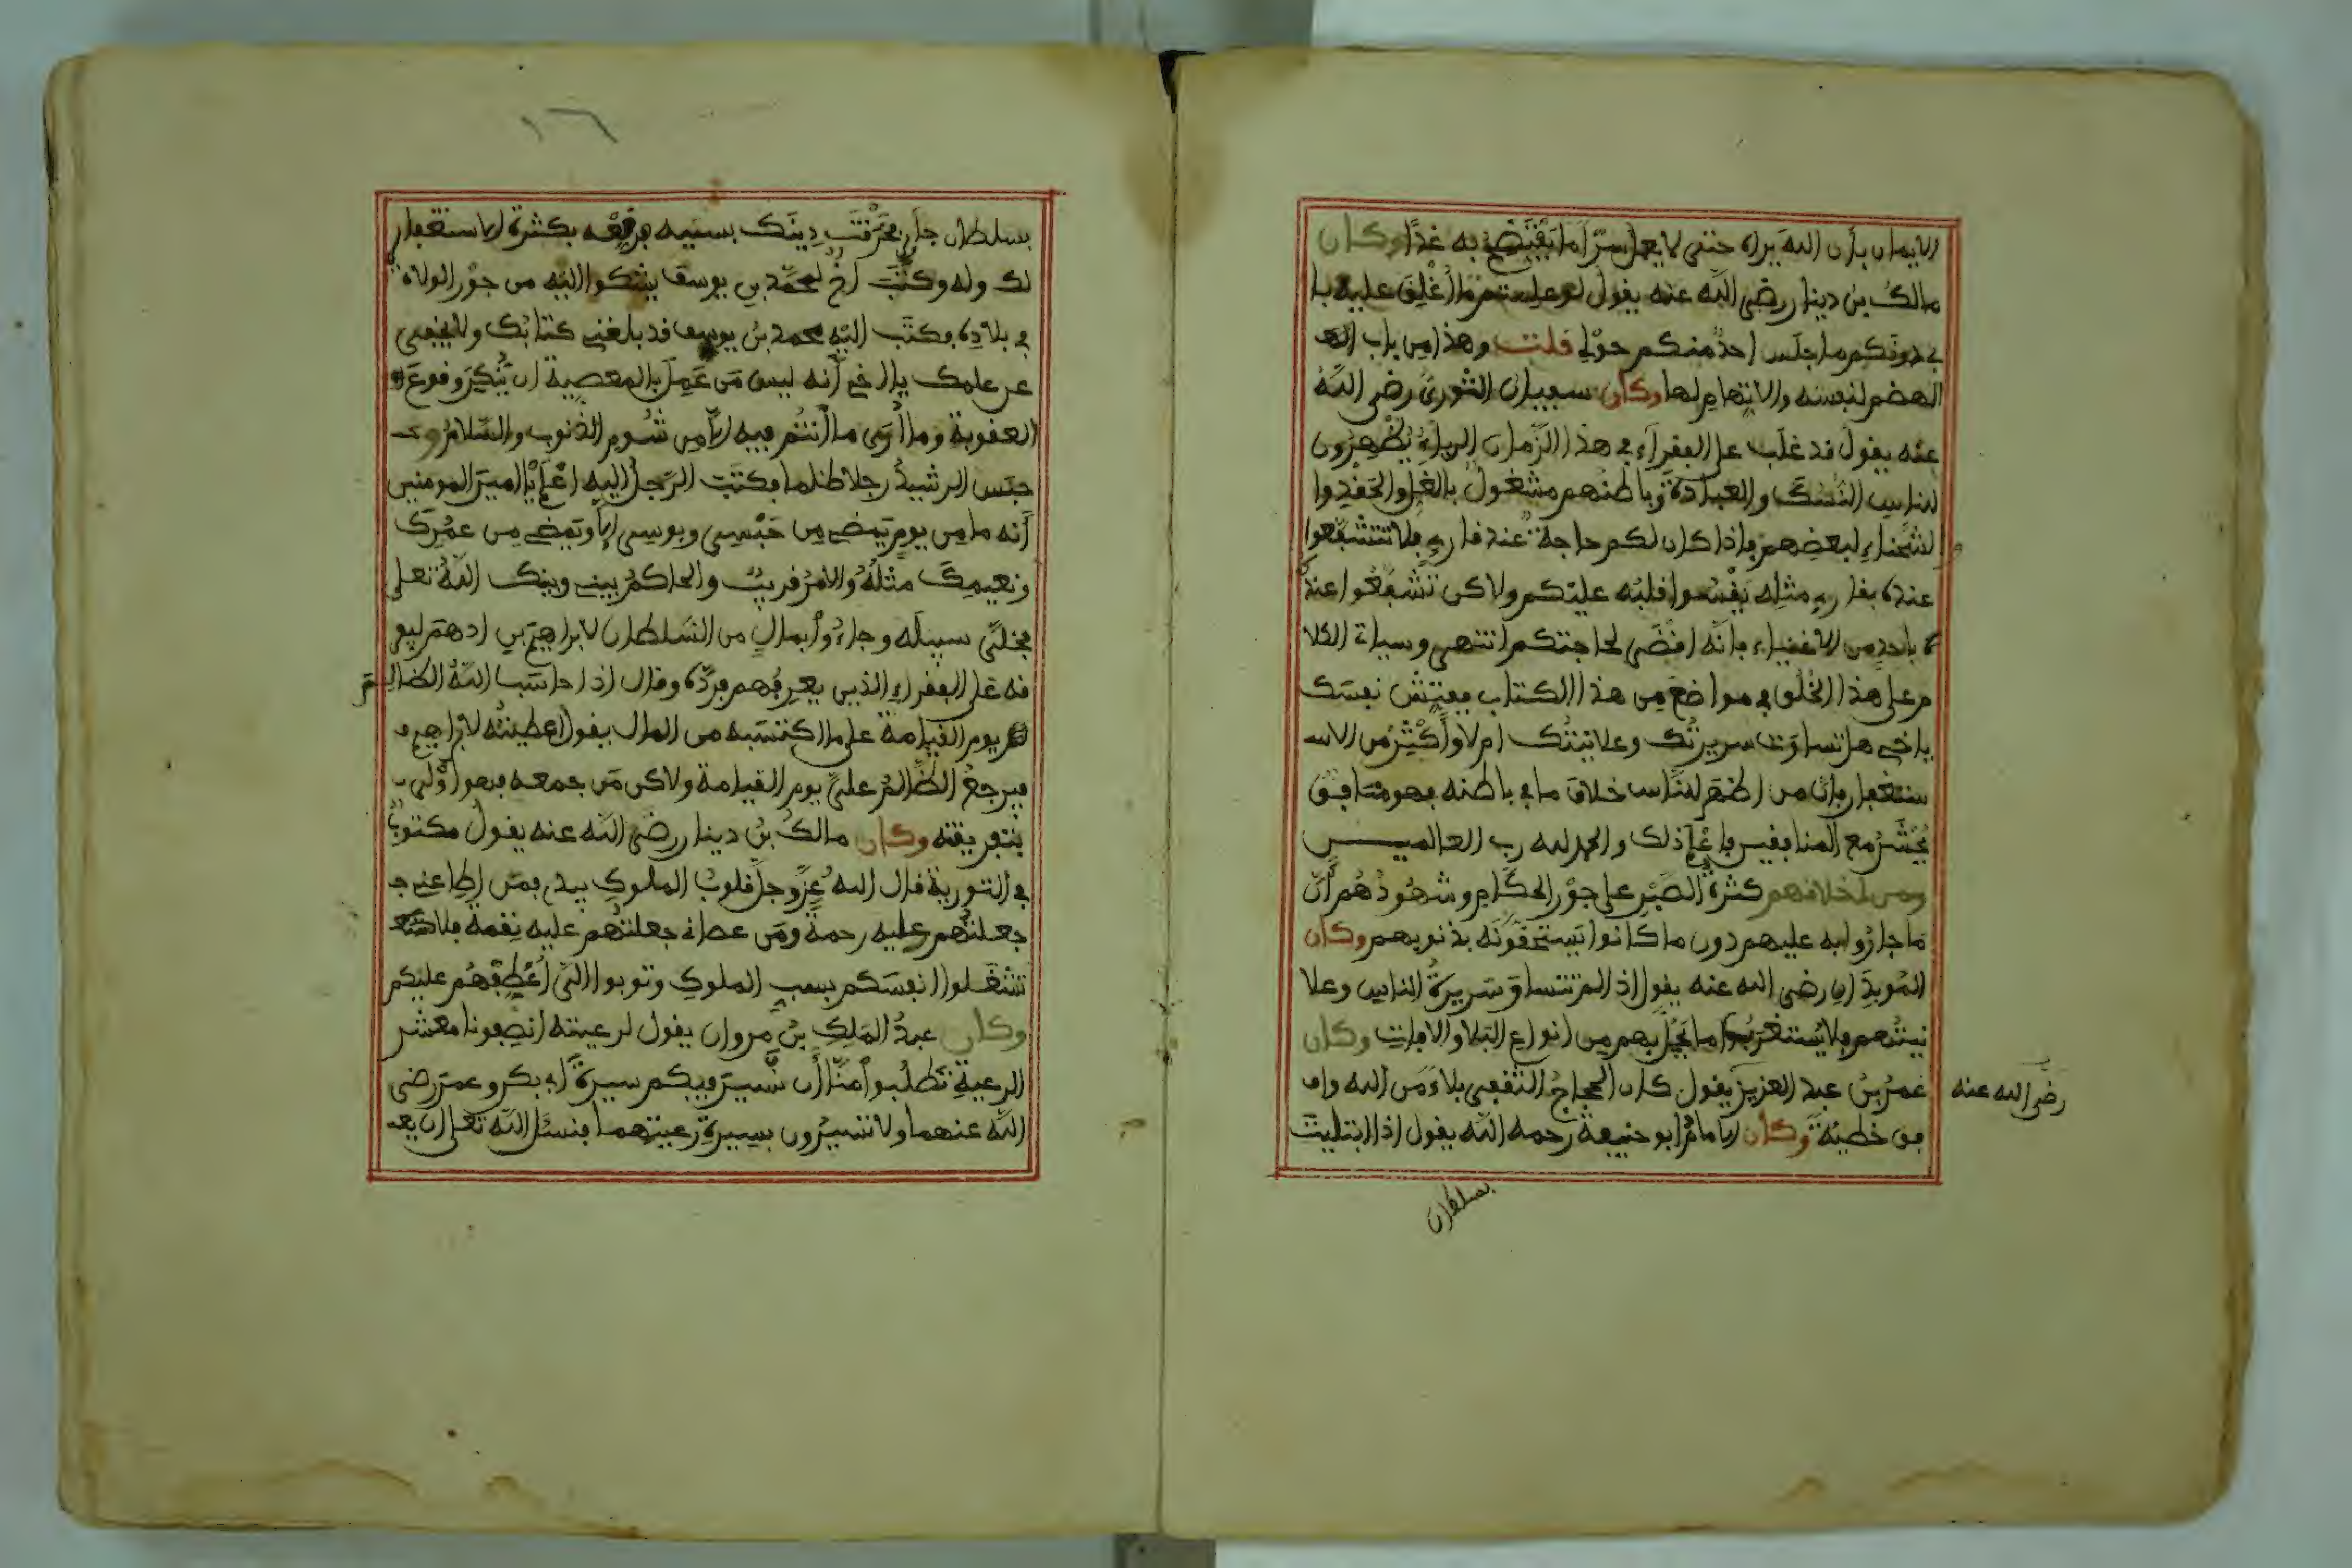 الايمان بأن الله يراه حتى لا يعمل سرّا ما يفتضح به غدًا وكان
مالك بن دينار رضي الله عنه يقول لو علمتم ما أغلق عليه با
بي دونكم ما جلس احد منكم حولي قلت وهذا من باب
الهضم لنفسه والاتهام لها وكان سفيان الثوري رضي الله
عنه يقول قد غلب على الفقراء في هذا الزمان الرياء يظهرون
للناس النسك والعبادة وباطنهم مشغول بالغل والحقد وا
لشحناء لبعضهم فاذا كان لكم حاجة عند قارئ فلا تتشفعوا
عنده بقارئ مثله يقسوا قلبه عليكم ولاكن تشفعوا عنده
باحد من الاغنياء فانه اقضى لحاجتكم انتهى وسياتي الكلا
م على هذا الخلق في مواضع من هذا الكتاب ففتش نفسك
ياخي هل تساوت سريرتك وعلانيتك ام لا وأكثر من الاسـ
ستغفار فان من اظهر للناس خلاف ما في باطنه فهو منافق
يحشر مع المنافقين فاعلم ذلك والحمد لله رب العالمين
ومن اخلاقهم كثرة الصبر على جور الحكام وشهودهم أن
ما جاروا به عليهم دون ما كانوا يستحقونه بذنوبهم وكان
رضي الله عنه يقول اذا لم تتساوَ سريرة الناس وعلا
نيتهم فلا يستغربوا ما يحل بهم من انواع البلاء والافات وكان
عمر بن عبد العزيز يقول كان الحجاج الثقفي بلاء من الله واف
رضي الله عنه
فق خطيئة وكان الامام ابو حنيفة رحمه الله يقول اذا ابتليت
بسلطان
١٦
بسلطان جار فخرقت دينك بسببه فرقعه بكثرة الاستغفار
لك وله وكتب اخ لمحمد بن يوسف يشكوا اليه من جور الولاة
في بلاده فكتب اليه محمد بن يوسف قد بلغني كتابك ولا يخفى
عن علمك يا اخي أنه ليس من عمل بالمعصية ان ينكر وقوع
العقوبة وما أرى ما أنتم فيه الا من شوم الذنوب والسلام و
حبس الرشيد رجلا ظلما فكتب الرجل اليه اعلم يا امير المومنين
أنه ما من يوم يمضي من حبسي وبوسي الا ويمضي من عمرك
ونعيمك مثله والامر قريب والحاكم بيني وبينك الله تعلى
فخلّى سبيله وجاءوا بمال من السلطان لابراهيم بن ادهم ليفر
قه على الفقراء الذين يعرفهم فردّه وقال اذا حاسب الله الظالم
يوم القيامة على ما اكتسبه من المال يقول اعطيته لابراهيم
فيرجع الظالم عليّ يوم القيامة ولاكن من جمعه فهو اولى
بتفريقه وكان مالك بن دينار رضي الله عنه يقول مكتوبٌ
في التورية قال الله عزّ وجل قلوب الملوك بيدي فمن اطاعني
جعلتهم عليه رحمة ومن عصاني جعلتهم عليه نقمة فلا
تشغلوا انفسكم بسبب الملوك وتوبوا الي أعطفهم عليكم
وكان عبد الملك بن مروان يقول لرعيته انصفونا معشر
الرعية تطلبوا منّا أن نسير فيكم سيرة أبي بكر وعمر رضي
الله عنهما ولا تسيرون بسيرة رعيتهما فنسئل الله تعلى ان يعـ